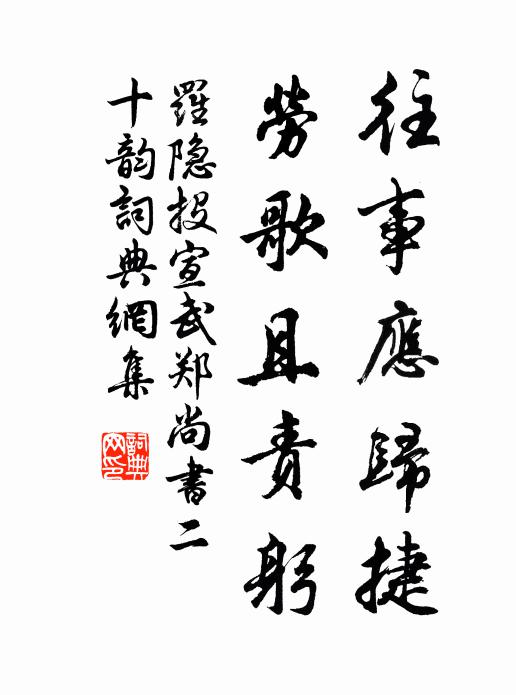 往事應歸捷
勞歌且責躬
羅隐投宣武郑尚書二
十韵詞典網集
詞典网印